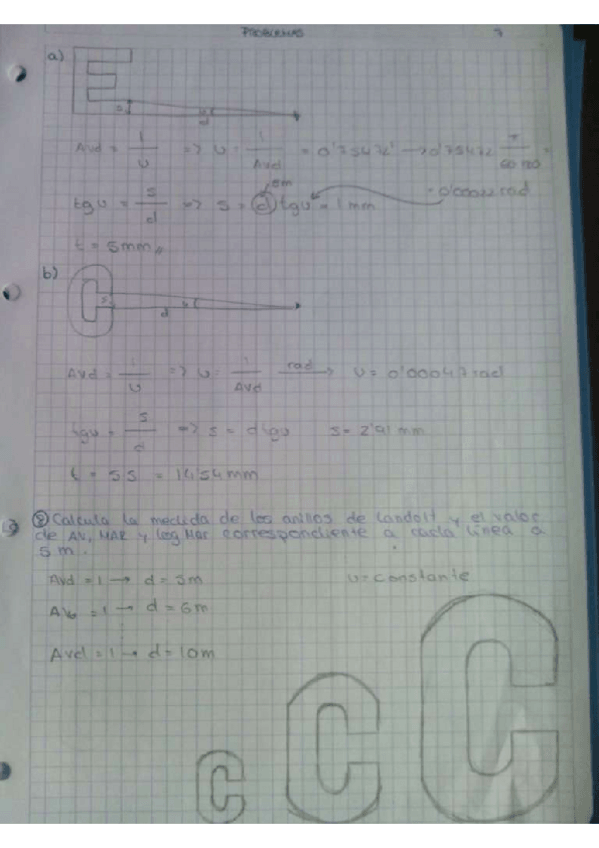 PROBLEMAS 7
a)
s u
d
Avd = 1/u => u = 1/Avd = 0'75472' → 0'75472 π/60·180 =
= 0'00022 rad
5m
tgu = s/d => s = d tgu = 1mm
t = 5mm
b)
s u
d
Avd = 1/u => u = 1/Avd rad → u = 0'00047 rad
tgu = s/d => s = d tgu s = 2'91 mm
t = 5s = 14'54mm
② Calcula la medida de los anillos de Landolt y el valor
de AV, MAR y Log Mar correspondiente a cada línea a
5 m.
Avd = 1 → d = 5m u = constante
= 1 → d = 6m
Avd = 1 → d = 10m
C C C